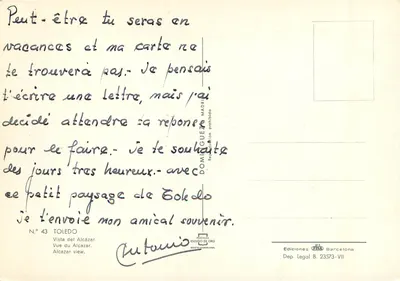 Peut-être tu seras en
vacances et ma carte ne
te trouverà pas.- Je pensais
t'écrire une lettre, mais j'ai
décidé attendre ta reponse
pour le faire.- Je te souhaite
des jours tres heureux.- avec
ce petit paysage de Toledo
je t'envoie mon amical souvenir.
Antonio
N.º 43 TOLEDO
Vista del Alcázar
Vue du Alcazar
Alcazar view.
DOMINGUEZ MADRID
Ediciones Barcelona
Dep. Legal B. 23573-VII